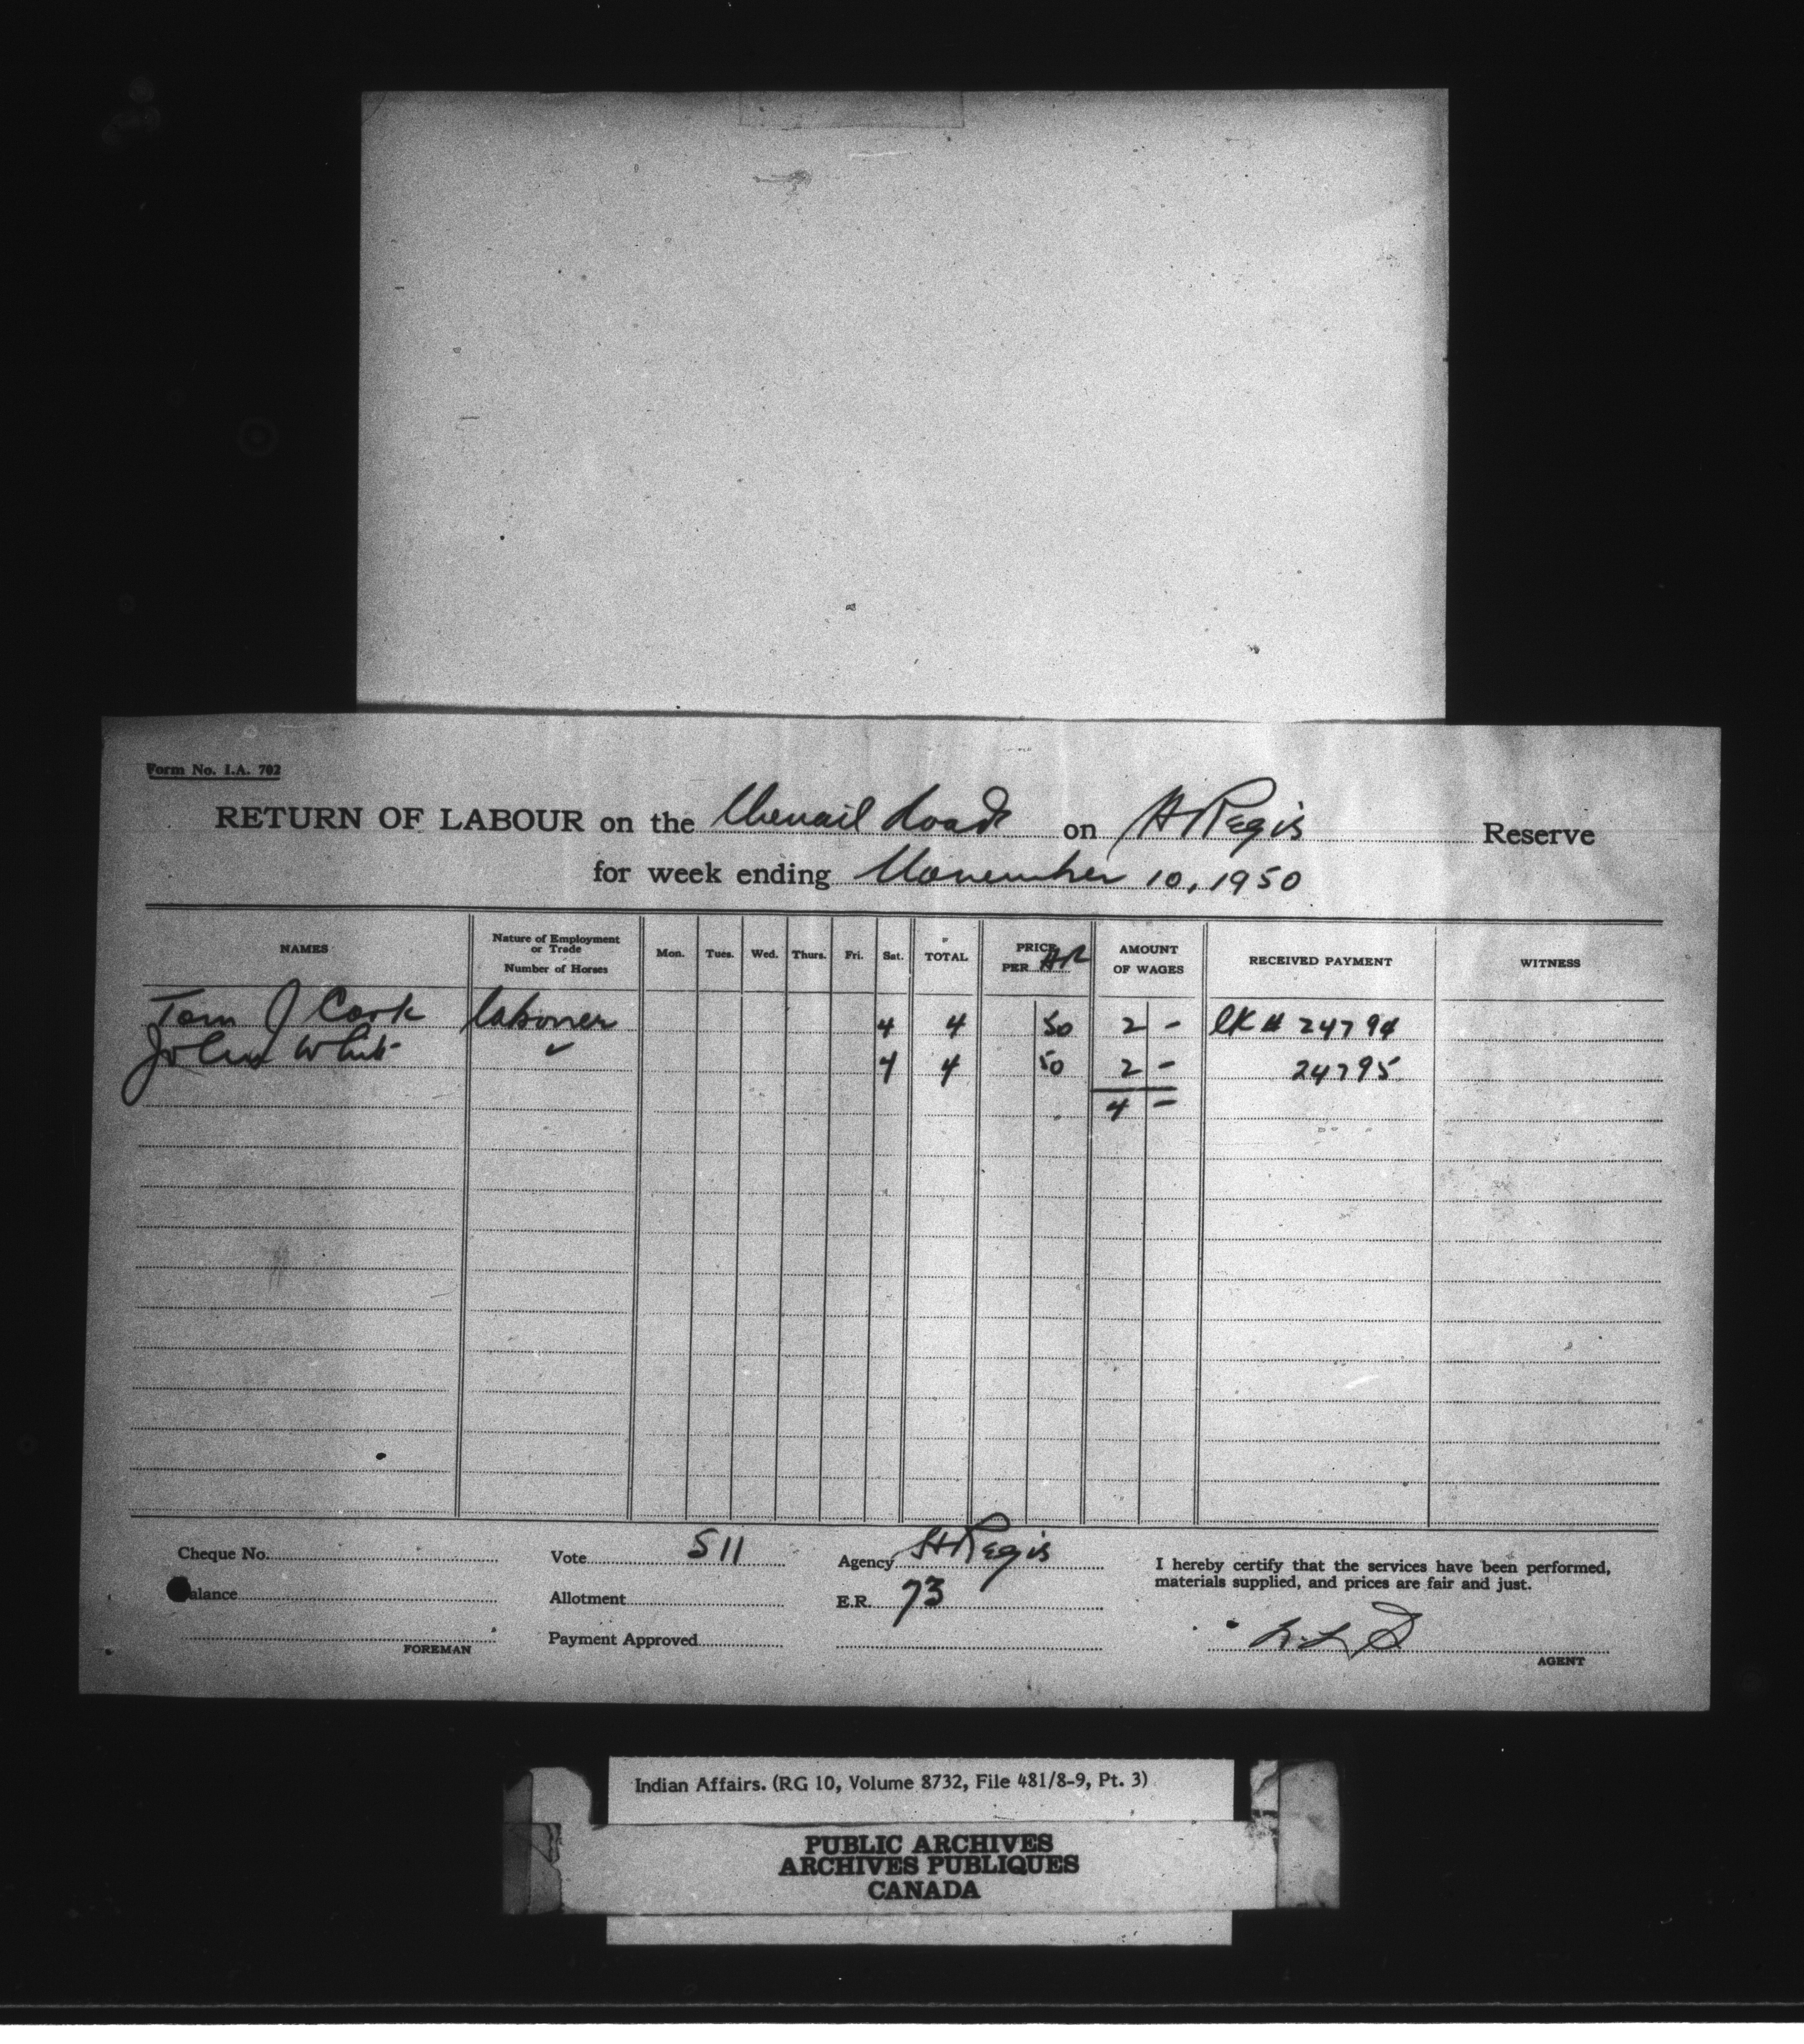 Form No. I.A. 702
RETURN OF LABOUR on the Chenail Road on St Regis Reserve
for week ending November 10, 1950
NAMES Nature of Employment or Trade Number of Horses Mon. Tues. Wed. Thurs. Fri. Sat. TOTAL PRICE PER HR AMOUNT OF WAGES RECEIVED PAYMENT WITNESS
Tom J Cook laborer 4 4 50 2 - CK # 24794
John White ✓ 4 4 50 2 - 24795
4 -
Cheque No. Vote 511 Agency St Regis
I hereby certify that the services have been performed,
materials supplied, and prices are fair and just.
Balance Allotment E.R. 73
FOREMAN Payment Approved AGENT
Indian Affairs. (RG 10, Volume 8732, File 481/8-9, Pt. 3)
PUBLIC ARCHIVES
ARCHIVES PUBLIQUES
CANADA